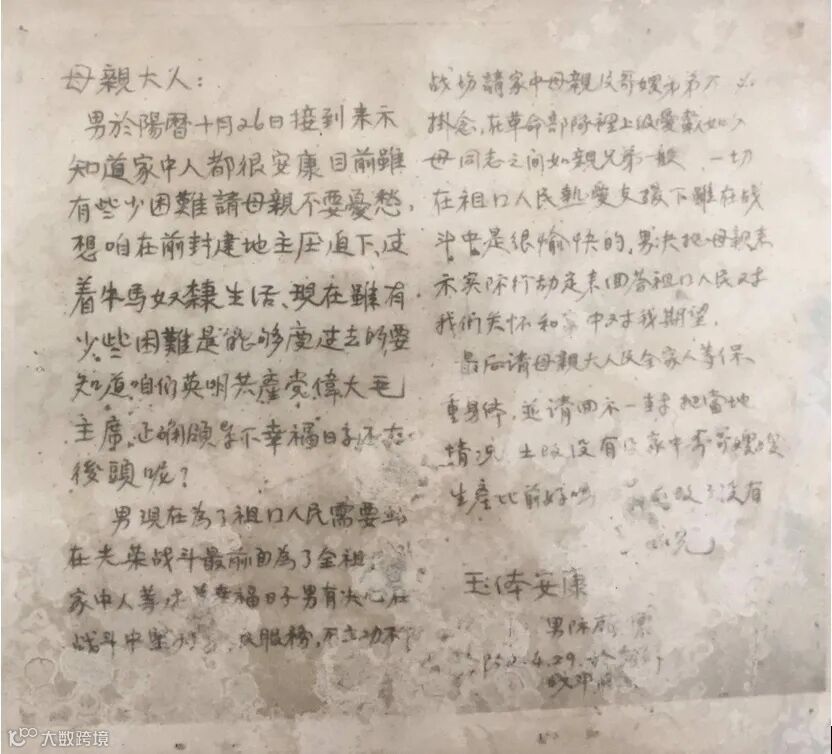 母親大人：
男於陽曆十月26日接到来示
知道家中人都很安康目前雖
有些少困難請母親不要憂愁，
想咱在前封建地主压迫下、过
着牛馬奴隸生活、現在雖有
少些困難是能够度过去的要
知道咱们英明共產党偉大毛
主席，正确領导下幸福日子还在
後頭呢？
男現在為了祖口人民需要站
在光荣战斗最前面為了全祖
家中人等 幸福日子男有决心在
战斗中坚 服務，不立功不
战场請家中母親及哥嫂弟弟不必
掛念，在革命部隊裡上级愛戴如父
母同志之间如親兄弟一般 一切
在祖口人民熱愛支援下雖在战
斗中是很愉快的，男决把母親来
示实际行动定来回答祖口人民对
我們关怀和家中对我期望。
最后請母親大人及全家人等保
重身体，並請回示一封把當地
情况 土改没有 家中哥哥嫂嫂
生產比前好吗 没有
玉体安康
男陈
4.29.於